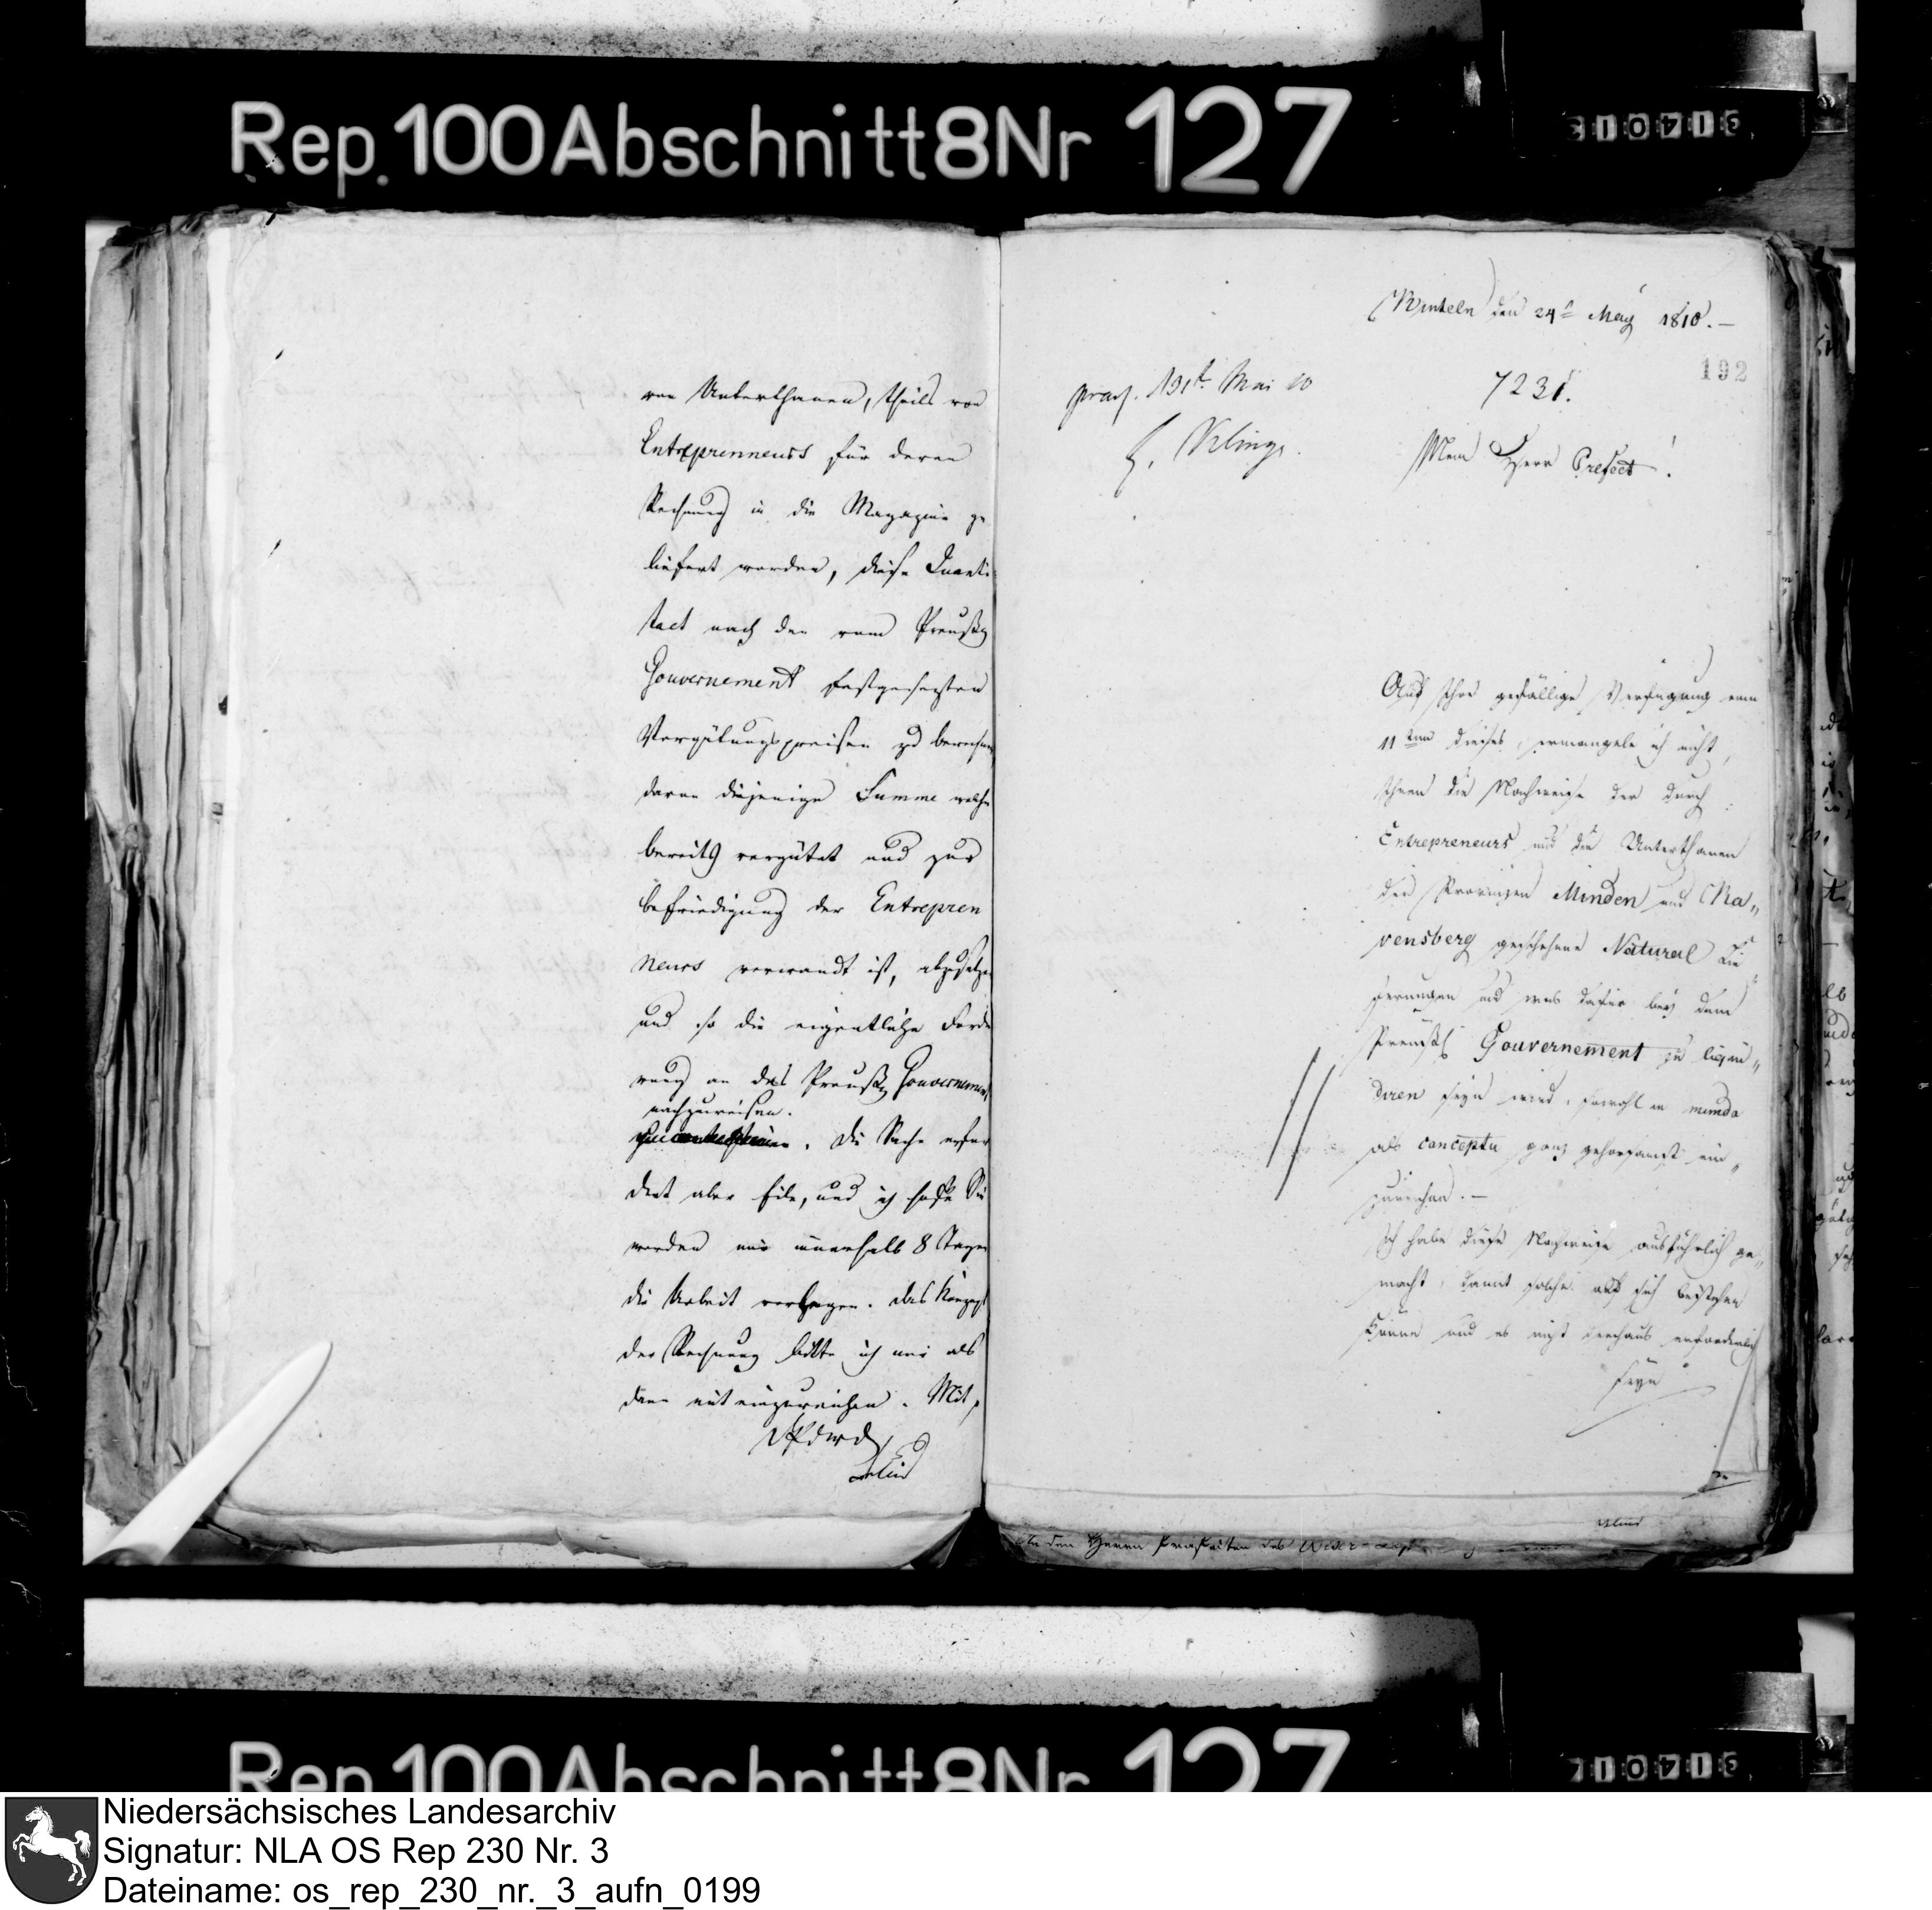 Rep. 100 Abschnitt 8 Nr 127
von Unterthanen, theils von
Entreprenneurs für deren
Rechnung in die Magazine ge
liefert worden, diese Quanti
taet nach den vom Preußs
Gouvernement festgesezten
Vergütungspreisen zu berechnen
davon diejenige Summe welche
bereits vergütet und zur
befriedigung der Entrepren
neurs verwandt ist, abzusetzen
und so die eigentliche Forde
rung an das Preußs Gouvernement
nachzuweisen.
Die Sache erfor
dert aber Eile, und ich hoffe Sie
werden mir innerhalb 8 Tagen
die Arbeit vorlegen. Das Konzept
der Rechnung bitte ich mir als
dann mit einzureichen. Mit
Rinteln den 24t May 1810.
192
praes. 31t Mai 10
7231.
Mein Herr Prefect!
Auf Ihre gefällige Verfügung vom
11ten dieses, ermangele ich nicht,
Ihnen die Nachweise der durch
Entrepreneurs und die Unterthanen
der Provinzen Minden und Ra„
vensberg geschehene Natural Lie„
ferungen und was dafür bey dem
Preußs Gouvernement zu liqui„
diren seyn wird, sowohl in mundo
als conceptu ganz gehorsamst ein„
zureichen.—
Ich habe diese Nachweise ausführlich ge„
macht, damit solche auf sich bestehen
könne und es nicht durchaus erforderlich
seyn
An den Herrn Praefecten des Weser-
Rep. 100 Abschnitt 8 Nr 127
Niedersächsisches Landesarchiv
Signatur: NLA OS Rep 230 Nr. 3
Dateiname: os_rep_230_nr._3_aufn_0199